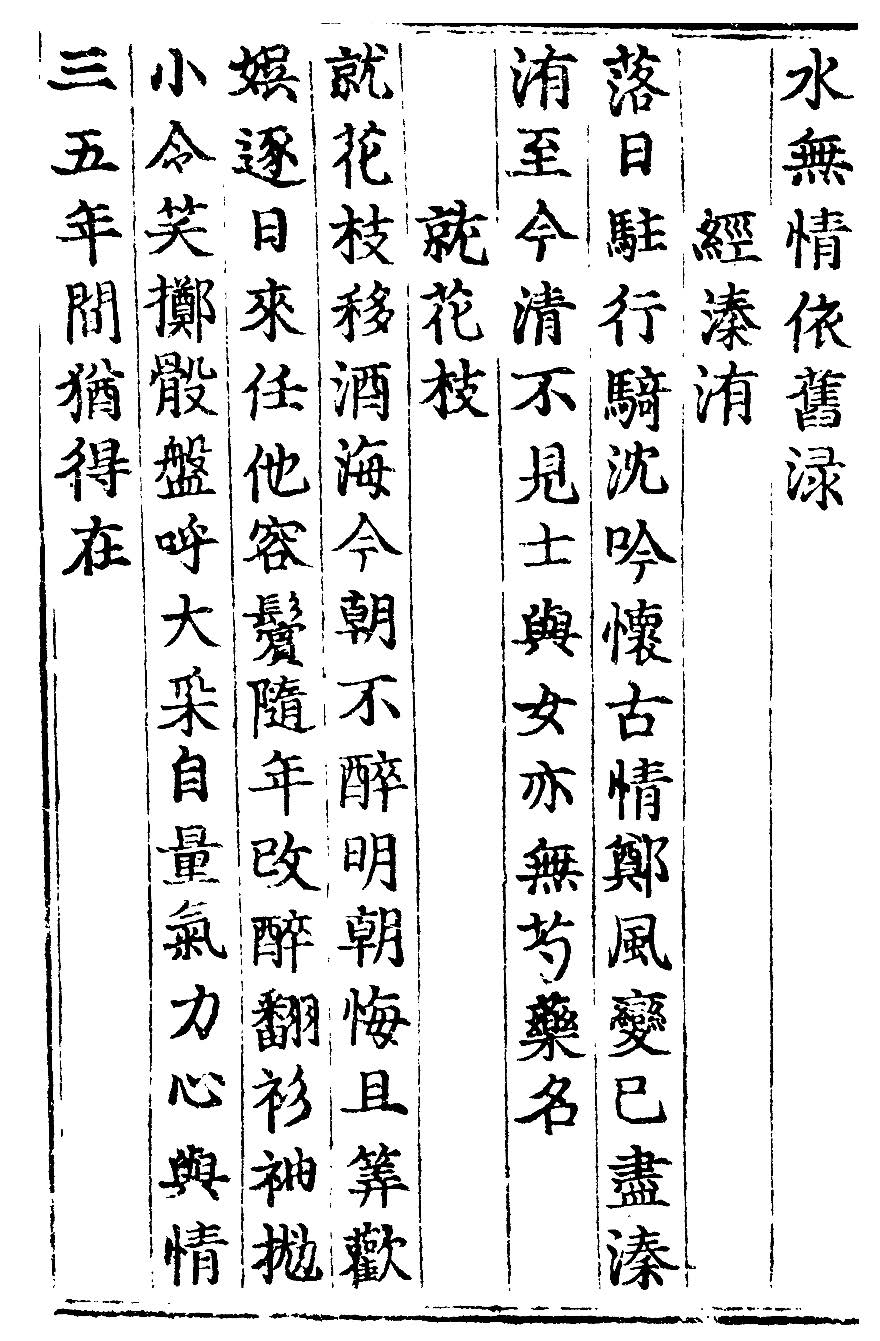 水無情依舊渌
經溱洧
落日駐行騎沈吟懷古情鄭風變已盡溱
洧至今清不見士與女亦無芍藥名
就花枝
就花枝移酒海今朝不醉明朝悔且筭歡
娱逐日來任他容鬢隨年改醉翻衫袖抛
小令笑擲骰盤呼大采自量氣力心與情
三五年間猶得在